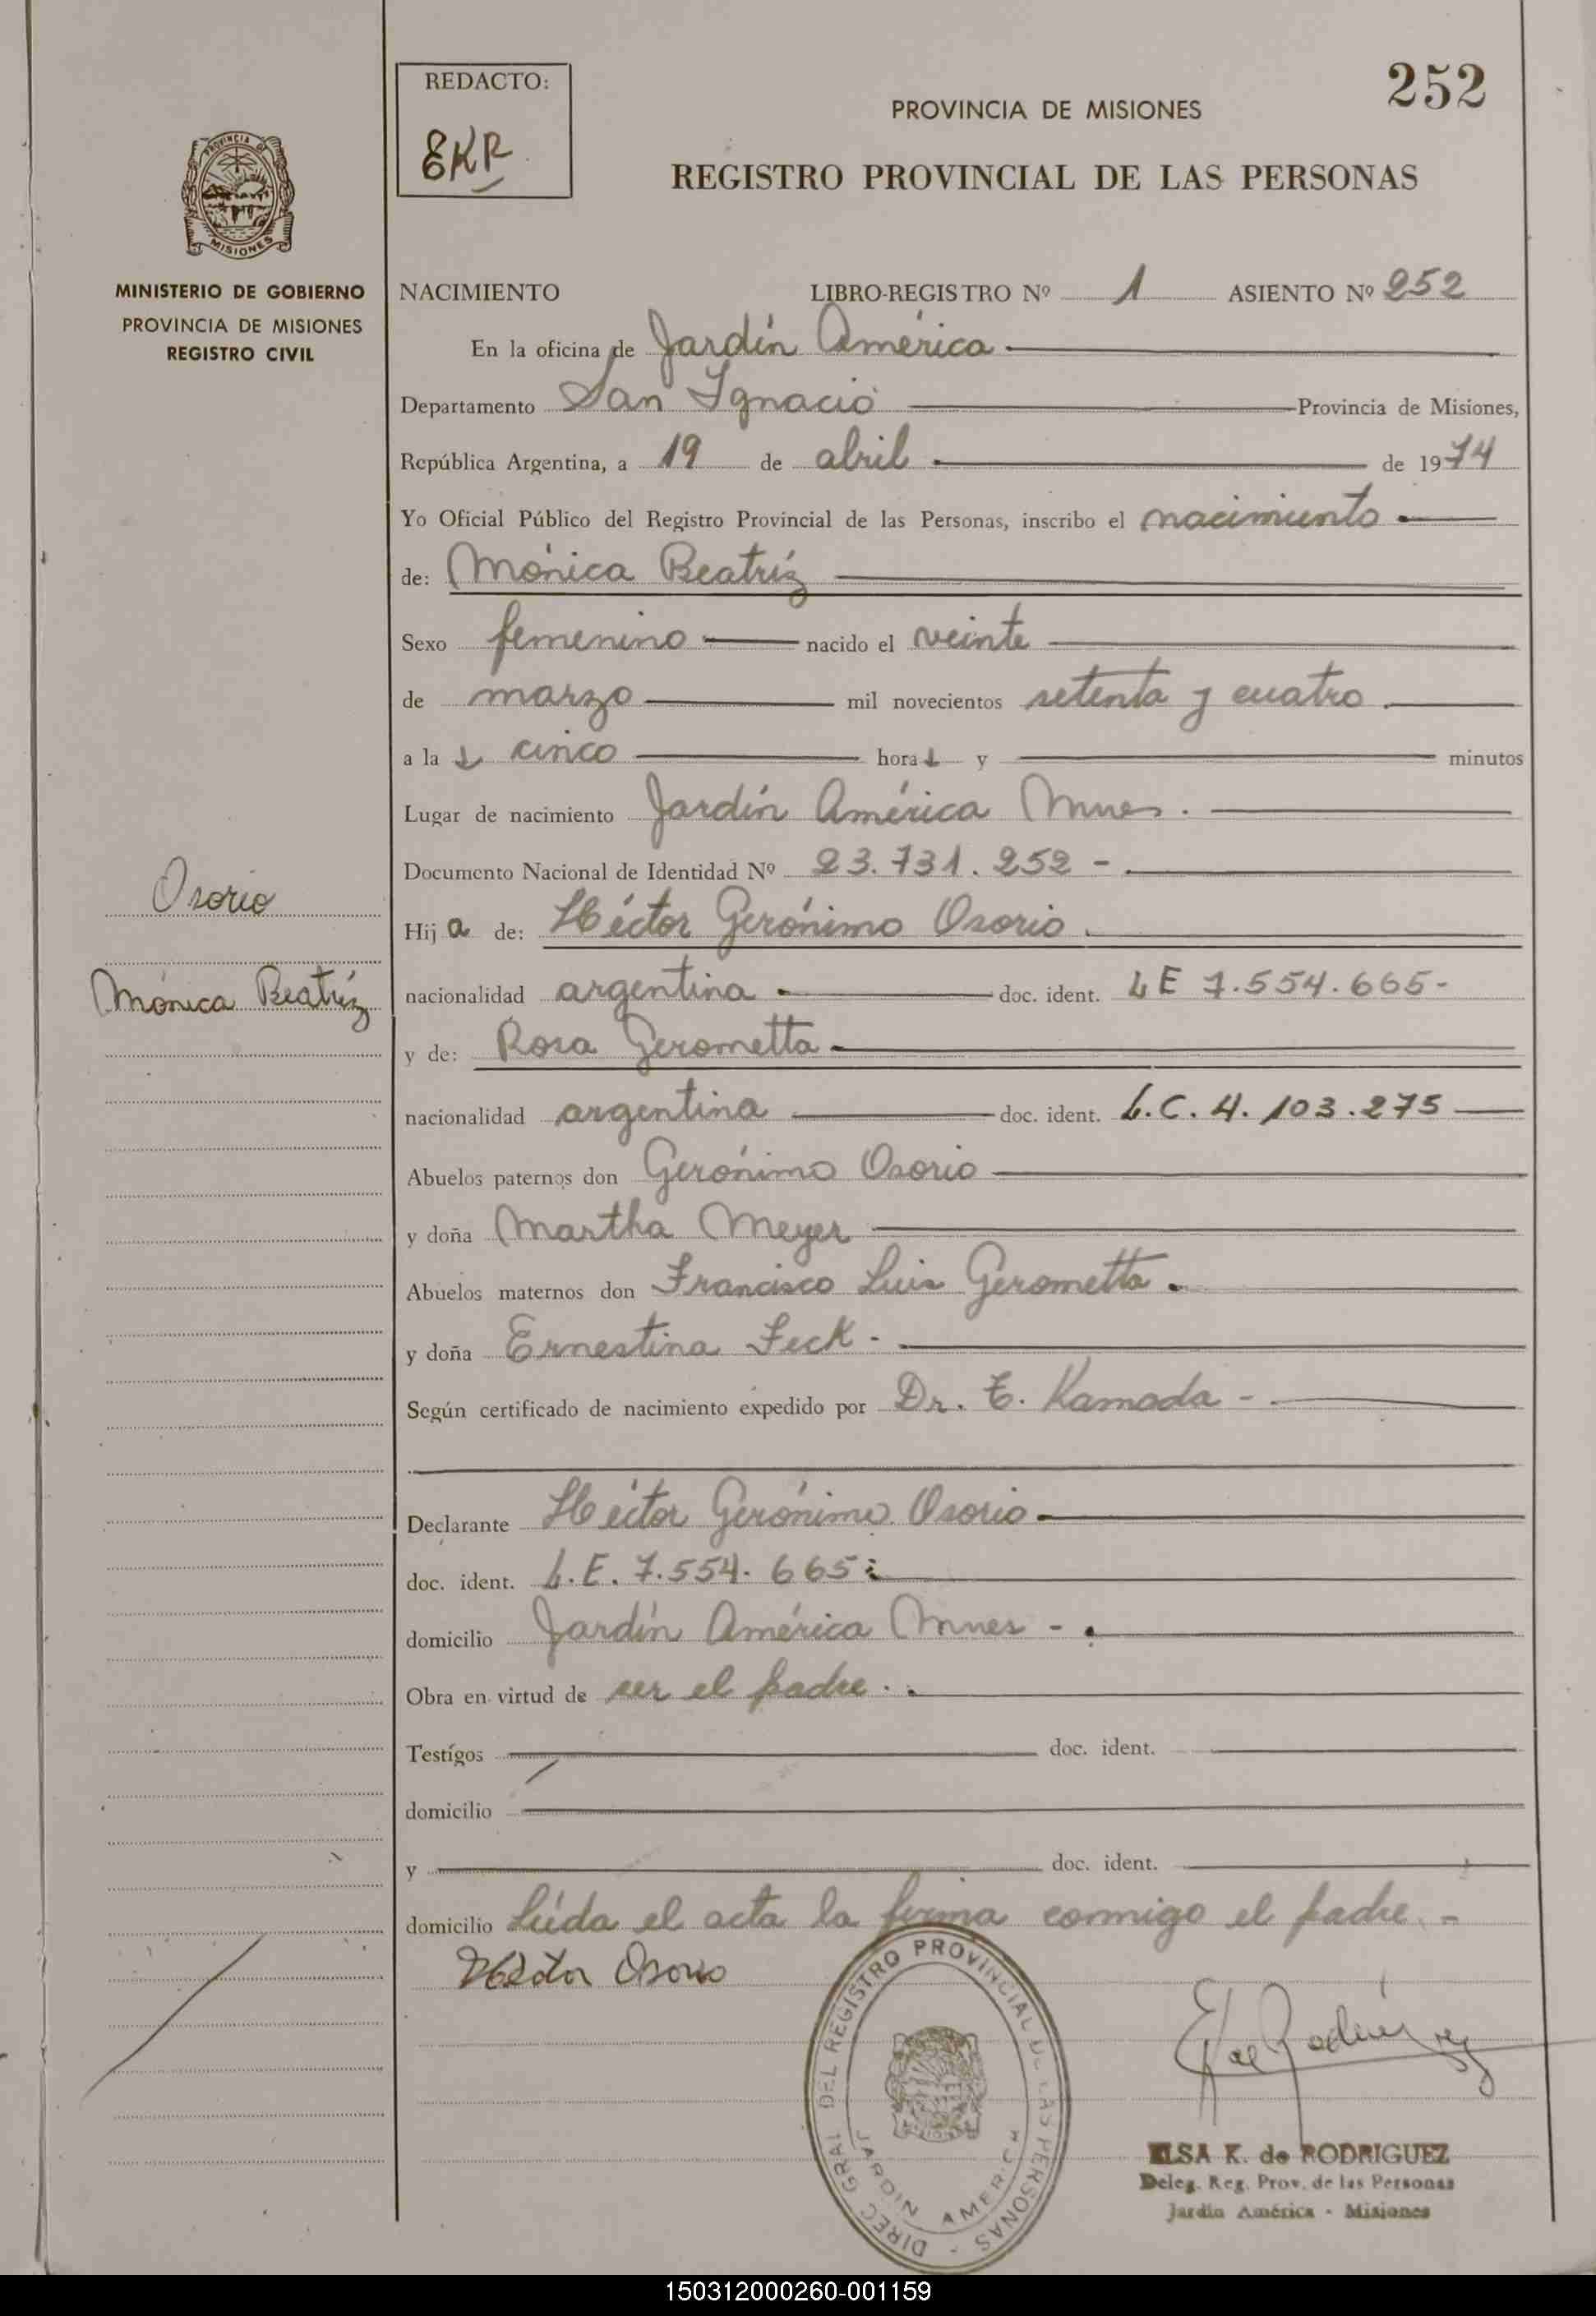 252
REDACTO:
EKR
PROVINCIA DE MISIONES
REGISTRO PROVINCIAL DE LAS PERSONAS
PROVINCIA DE
MISIONES
MINISTERIO DE GOBIERNO
PROVINCIA DE MISIONES
REGISTRO CIVIL
NACIMIENTO LIBRO-REGISTRO Nº 1 ASIENTO Nº 252
En la oficina de Jardín América
Departamento San Ignacio Provincia de Misiones,
República Argentina, a 19 de abril de 1974
Yo Oficial Público del Registro Provincial de las Personas, inscribo el nacimiento
de: Mónica Beatríz
Sexo femenino nacido el veinte
de marzo mil novecientos setenta y cuatro.
a la s cinco hora s y minutos
Lugar de nacimiento Jardín América Mnes.
Documento Nacional de Identidad Nº 23.731.252 -
Osorio
Hij a de: Héctor Gerónimo Osorio.
Mónica Beatríz
nacionalidad argentina doc. ident. L E 7.554.665-
y de: Rosa Gerometta
nacionalidad argentina doc. ident. L.C. 4.103.275
Abuelos paternos don Gerónimo Osorio
y doña Martha Meyer
Abuelos maternos don Francisco Luis Gerometta.
y doña Ernestina Feck -
Según certificado de nacimiento expedido por Dr. E. Kamada -
Declarante Héctor Gerónimo Osorio
doc. ident. L.E. 7.554.665
domicilio Jardín América Mnes -
Obra en virtud de ser el padre.
Testigos doc. ident.
domicilio
y doc. ident.
domicilio Leída el acta la firma conmigo el padre. -
Héctor Osorio
DIREC GRAL DEL REGISTRO PROVINCIAL DE LAS PERSONAS -
JARDIN AMERICA
E K de Rodriguez
ELSA K. de RODRIGUEZ
Deleg. Reg. Prov. de las Personas
Jardín América - Misiones
150312000260-001159